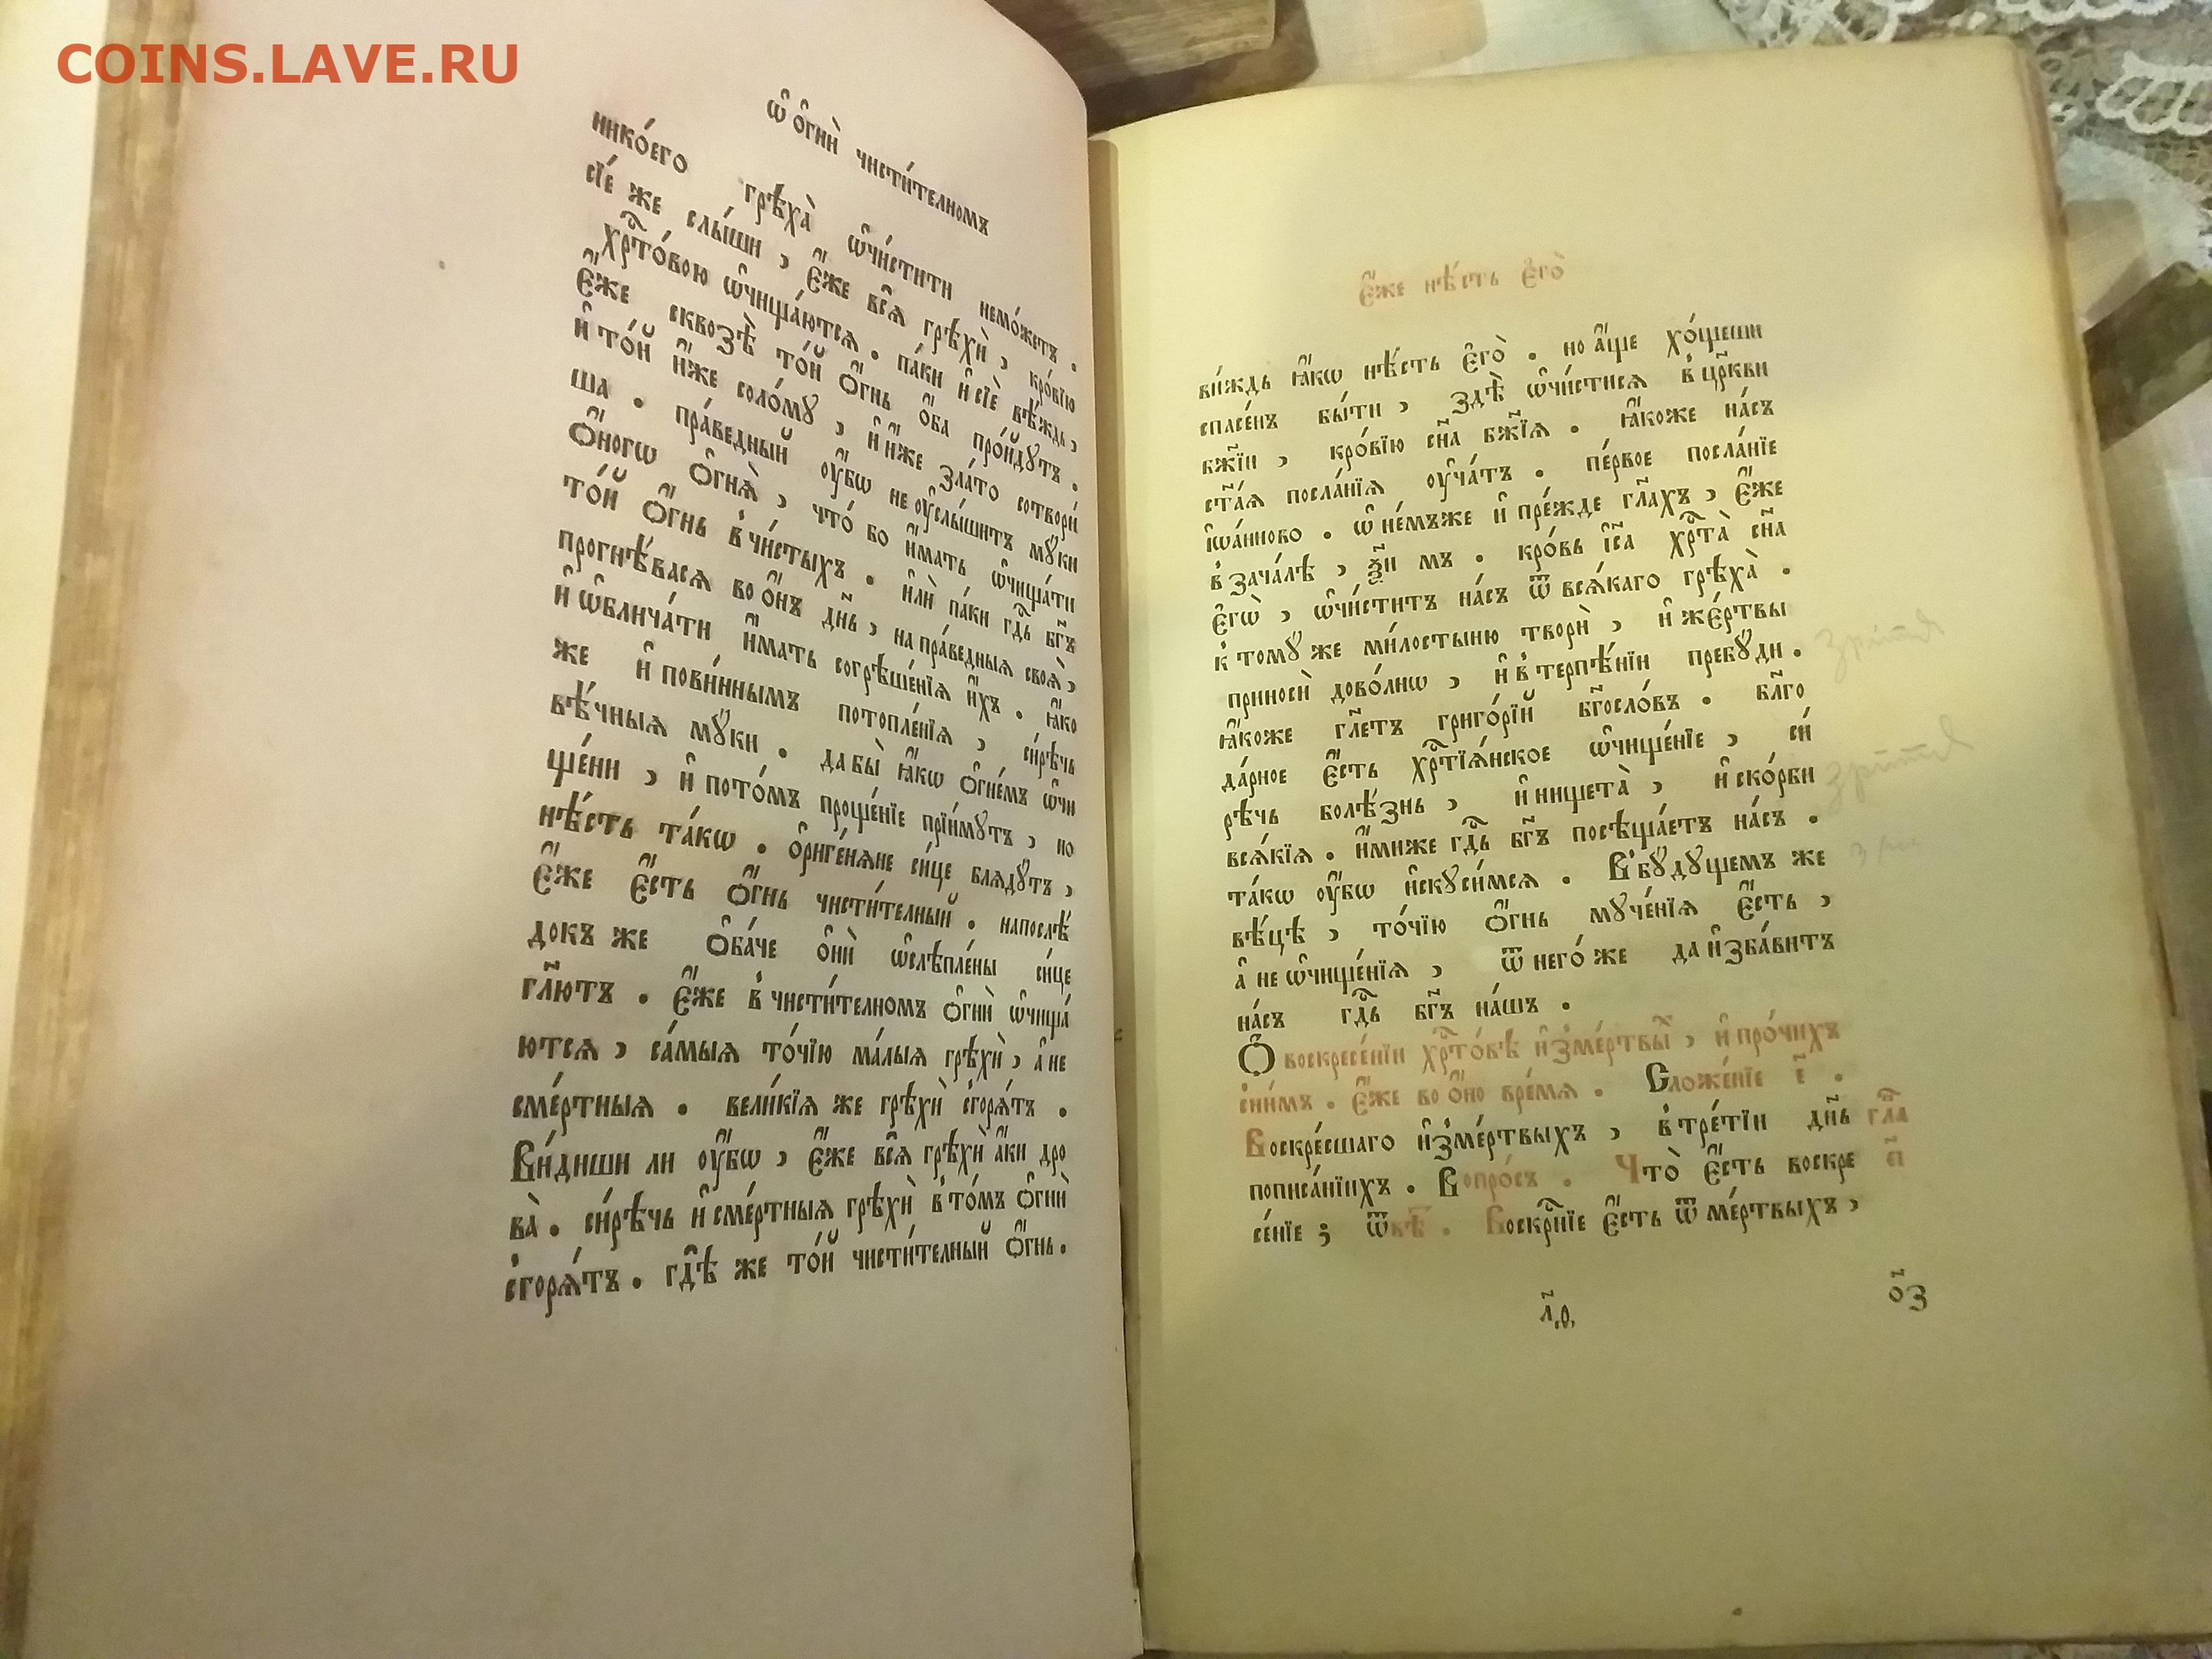 COINS.LAVE.RU
ѡ҆ ѻ҆гнѝ чисти́телномъ
нико́его грѣха̀ ѡ҆чи́стити немо́жетъ .
сїе́ же слы́ши , є҆́же всѧ̑ грѣхѝ , кро́вїю
хрⷭ҇то́вою ѡ҆чища́ютсѧ . па́ки и҆ сїѐ вѣ́ждь ,
є҆́же сквозѣ̀ то́й ѻ҆́гнь ѻ҆́ба про́йдꙋтъ .
и҆ то́й и҆́же соло́мꙋ , и҆ и҆́же зла́то сотвори́
ша . пра́ведный ᲂу҆́бѡ не ᲂу҆слы́шитъ мꙋ́ки
ѻ҆́ногѡ ѻ҆гнѧ̀ , что́ бо и҆́мать ѡ҆чища́ти
то́й ѻ҆́гнь в҆чи́стыхъ . и҆лѝ па́ки гдⷭ҇ь бг҃ъ
прогнѣ́васѧ во ѻ҆́нъ дн҃ь , на пра́ведныѧ своѧ̀ ,
и҆ ѡ҆блича́ти и҆́мать согрѣше́нїѧ и҆́хъ . ꙗ҆́ко
же и҆ пови́ннымъ потопле́нїѧ , си́рѣчь
вѣ́чныѧ мꙋ́ки . да бы̀ ꙗ҆́кѡ ѻ҆гне́мъ ѡ҆чи
ще́ни , и҆ пото́мъ проще́нїе прїи́мꙋтъ , но
нѣ́сть та́кѡ . ѻ҆риге́нѧне си́це блѧдꙋ́тъ ,
є҆́же є҆́сть ѻ҆́гнь чисти́телный . напослѣ́
докъ же ѻ҆ба́че ѻ҆нѝ ѡ҆слѣпле́ны си́це
гл҃ютъ . є҆́же в҆ чисти́телномъ ѻ҆гнѝ ѡ҆чища́
ютсѧ , са́мыѧ то́чїю ма́лыѧ грѣхѝ , а҆ не
сме́ртныѧ . вели́кїѧ же грѣхѝ с҆горѧ́тъ .
Ви́диши ли ᲂу҆́бѡ , є҆́же всѧ̑ грѣхѝ а҆́ки дро
ва̀ . си́рѣчь и҆ сме́ртныѧ грѣхѝ в҆ то́мъ ѻ҆гнѝ
с҆горѧ́тъ . гдѣ̀ же то́й чисти́телный ѻ҆́гнь .
є҆́же нѣ́сть є҆гѡ̀
ви́ждь ꙗ҆́кѡ нѣ́сть є҆го̀ . но а҆́ще хо́щеши
спасе́нъ бы́ти , здѣ̀ ѡ҆чи́стисѧ в҆ цр҃кви
бж҃їи , кро́вїю сн҃а бж҃їѧ . ꙗ҆́коже на́съ
ст҃а́ѧ посла́нїѧ ᲂу҆ча́тъ . пе́рвое посла́нїе
і҆ѡа́нново . ѡ҆ не́мъже и҆ пре́жде гл҃ахъ , є҆́же
в҆ зача́лѣ , ѯ҃и мъ . кро́вь і҆с҃а хрⷭ҇та̀ сн҃а
є҆гѡ̀ , ѡ҆чи́ститъ на́съ ѿ всѧ́каго грѣха̀ .
к҆ томꙋ́ же ми́лостыню творѝ , и҆ же́ртвы
приносѝ дово́лнѡ , и҆ в҆ терпѣ́нїи пребꙋ́ди .
ꙗ҆́коже гл҃етъ григо́рїй бг҃осло́въ . бл҃го
да́рное є҆́сть хрⷭ҇тїѧ́нское ѡ҆чище́нїе , си́
рѣчь болѣ́знь , и҆ нищета̀ , и҆ ско́рби
всѧ́кїѧ . и҆́миже гдⷭ҇ь бг҃ъ посѣща́етъ на́съ .
та́кѡ ᲂу҆́бѡ и҆скꙋси́мсѧ . В҆ бꙋ́дꙋщемъ же
вѣ́цѣ , то́чїю ѻ҆́гнь мꙋче́нїѧ є҆́сть ,
а҆ не ѡ҆чище́нїѧ , ѿ него́ же да и҆зба́витъ
на́съ гдⷭ҇ь бг҃ъ на́шъ .
Ѻ҆ воскресе́нїи хрⷭ҇то́вѣ и҆з̾ме́ртвыⷯ , и҆ про́чихъ
с҆ни́мъ . є҆́же во ѻ҆́но вре́мѧ . Сложе́нїе є҃ .
Воскре́сшаго и҆з̾ме́ртвыхъ , в҆ тре́тїи дн҃ь гла
пописа́нїихъ . Вопро́съ . Что̀ є҆́сть воскре є҃і
се́нїе ; ѿвѣ́тъ . Воскрⷭ҇нїе є҆́сть ѿ ме́ртвыхъ ,
л҃,ѳ,
о҃з